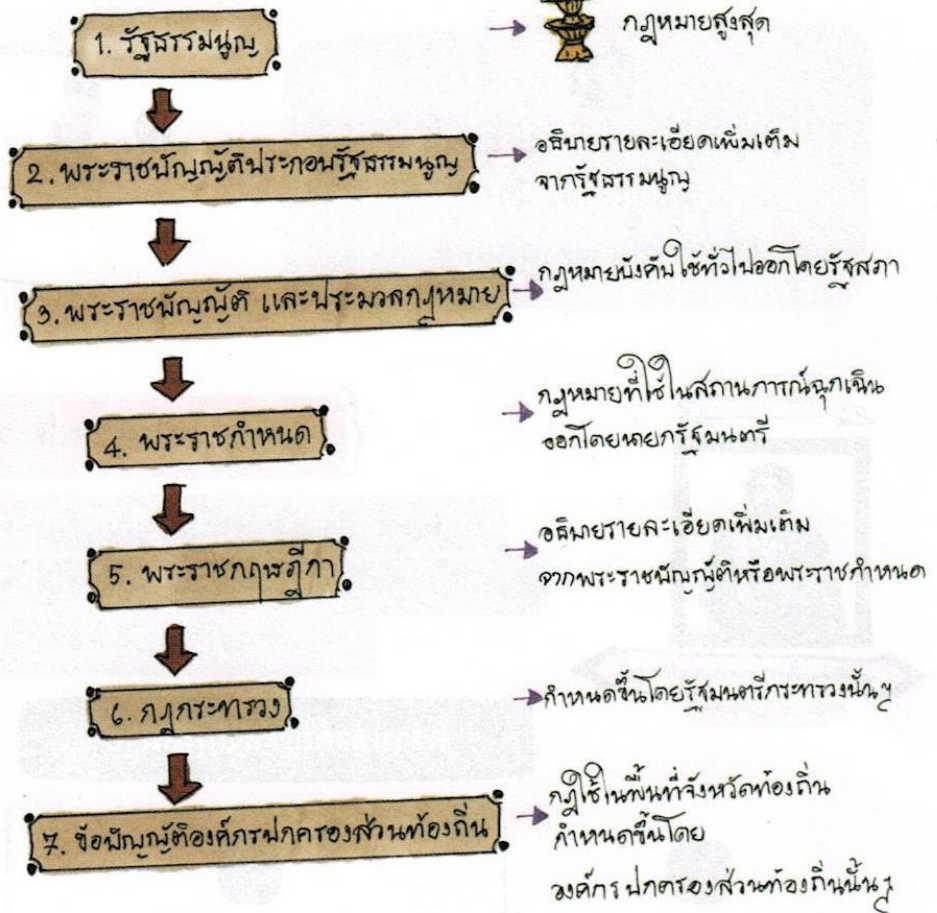 1. รัฐธรรมนูญ
กฎหมายสูงสุด
2. พระราชบัญญัติประกอบรัฐธรรมนูญ
อธิบายรายละเอียดเพิ่มเติม
จากรัฐธรรมนูญ
3. พระราชบัญญัติ และประมวลกฎหมาย
กฎหมายบังคับใช้ทั่วไปออกโดยรัฐสภา
4. พระราชกำหนด
กฎหมายที่ใช้ในสถานการณ์ฉุกเฉิน
ออกโดยนายกรัฐมนตรี
5. พระราชกฤษฎีกา
อธิบายรายละเอียดเพิ่มเติม
จากพระราชบัญญัติหรือพระราชกำหนด
6. กฎกระทรวง
กำหนดขึ้นโดยรัฐมนตรีกระทรวงนั้นๆ
7. ข้อบัญญัติองค์กรปกครองส่วนท้องถิ่น
กฎใช้ในพื้นที่จังหวัดท้องถิ่น
กำหนดขึ้นโดย
องค์กรปกครองส่วนท้องถิ่นนั้นๆ